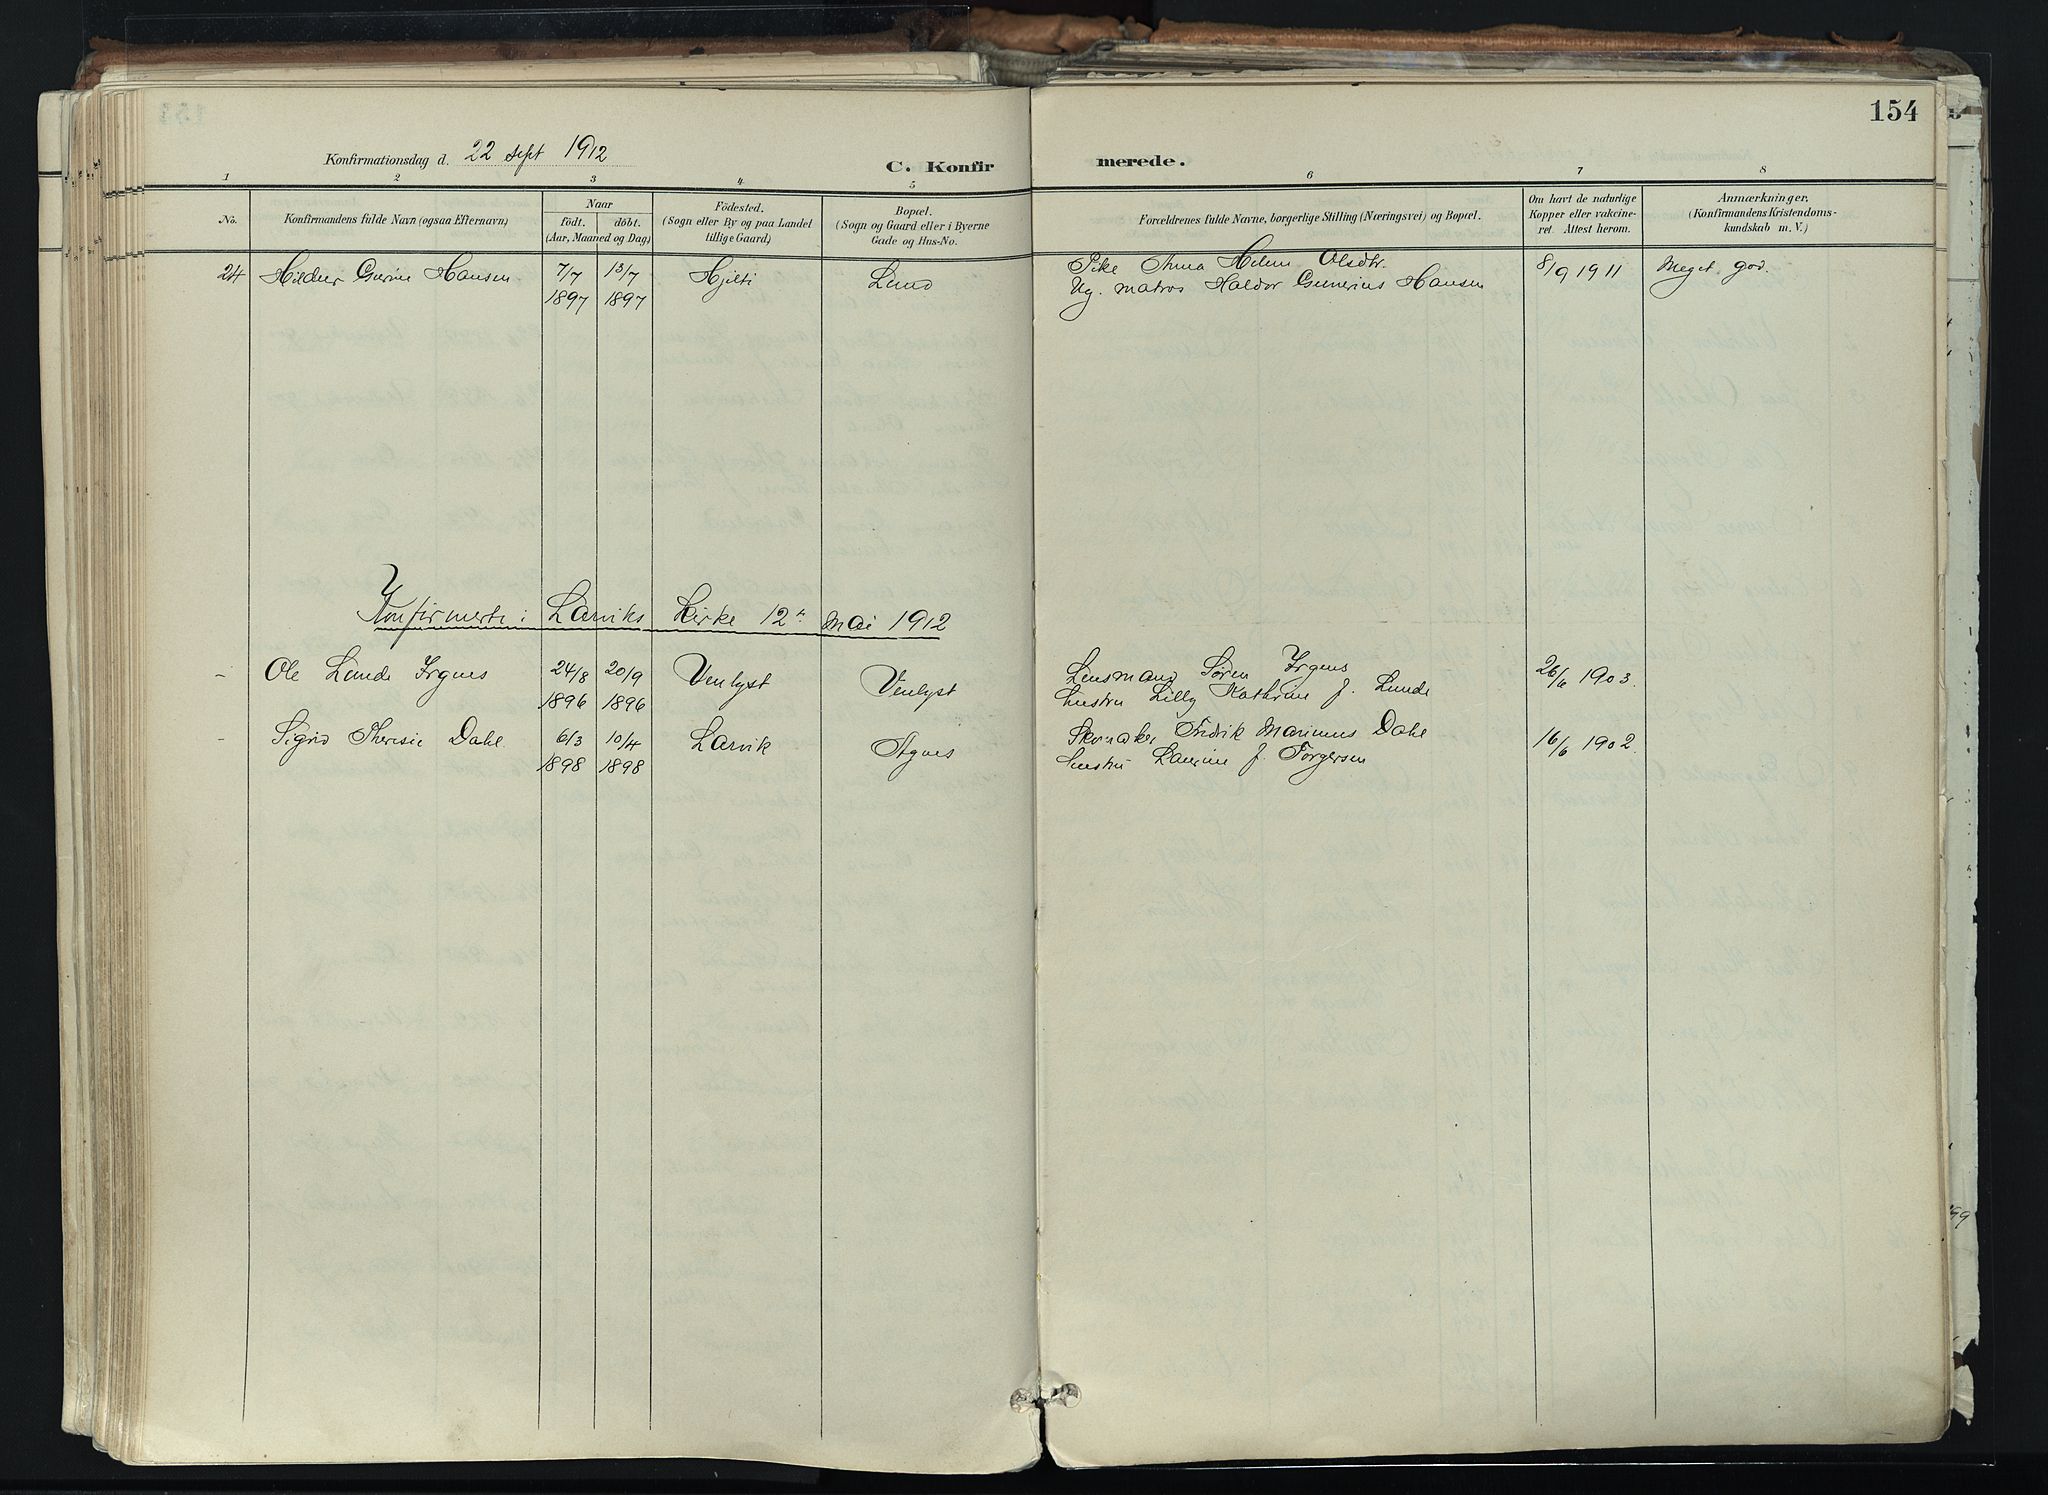 154
Konfirmationsdag d. 22 sept 1912
C. Konfirmerede.
1 2 3 4 5 6 7 8
No.
Konfirmandens fulde Navn (ogsaa Efternavn)
Naar
födt. döbt.
(Aar, Maaned og Dag)
Födested.
(Sogn eller By og paa Landet
tillige Gaard)
Bopæl.
(Sogn og Gaard eller i Byerne
Gade og Hus-No.
Forældrenes fulde Navne, borgerlige Stilling (Næringsvei) og Bopæl.
Om havt de naturlige
Kopper eller vaccine-
ret. Attest herom.
Anmærkninger.
(Konfirmandens Kristendoms-
kundskab m. V.)
24 Hildur Gunrine Hansen 7/7 13/7 Hjelti Lund Pike Anna Helene Olsdtr. 8/9 1911 Meget god.
1897 1897 Ug. matros Haldor Gunerius Hansen
Konfirmerte i Larviks Kirke 12te Mai 1912
- Ole Lunde Irgens 24/8 20/9 Venlyst Venlyst Lensmand Søren Irgens 26/6 1903.
1896 1896 hustru Lilly Kathrine f. Lunde
- Sigrid Theresie Dahl 6/3 10/4 Larvik Agnes Skomaker Fredrik Marinus Dahl 16/6 1902.
1898 1898 hustru Laurine f. Torgersen